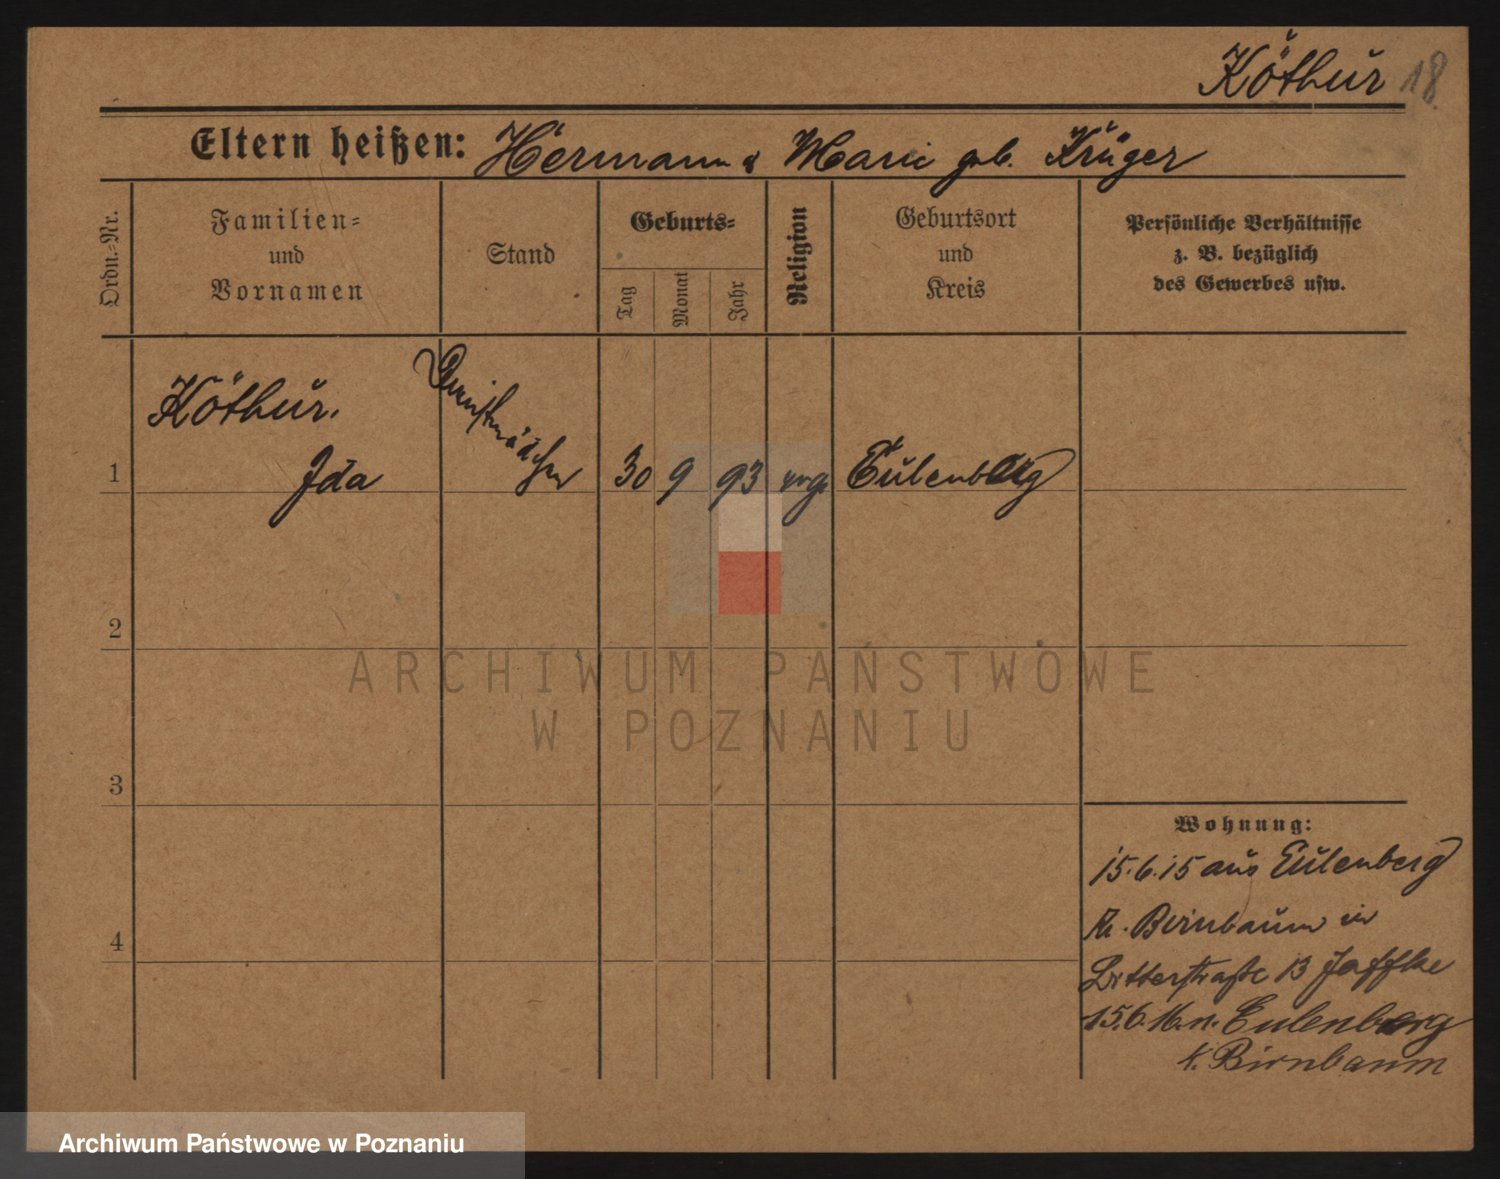 Köthur 18.
Eltern heißen: Hermann & Marie geb. Krüger
Ordn.-Nr.
Familien-
und
Vornamen
Stand
Geburts-
Tag
Monat
Jahr
Religion
Geburtsort
und
Kreis
Persönliche Verhältnisse
z. B. bezüglich
des Gewerbes usw.
Köthur.
Dienstmädchen
1 Ida 30 9 93 evg. Eulenberg
2
3
4
ARCHIWUM PAŃSTWOWE
W POZNANIU
Wohnung:
15.6.15 aus Eulenberg
Kr. Birnbaum in
13 Jaffke
15.6.16. n. Eulenberg
K. Birnbaum
Archiwum Państwowe w Poznaniu